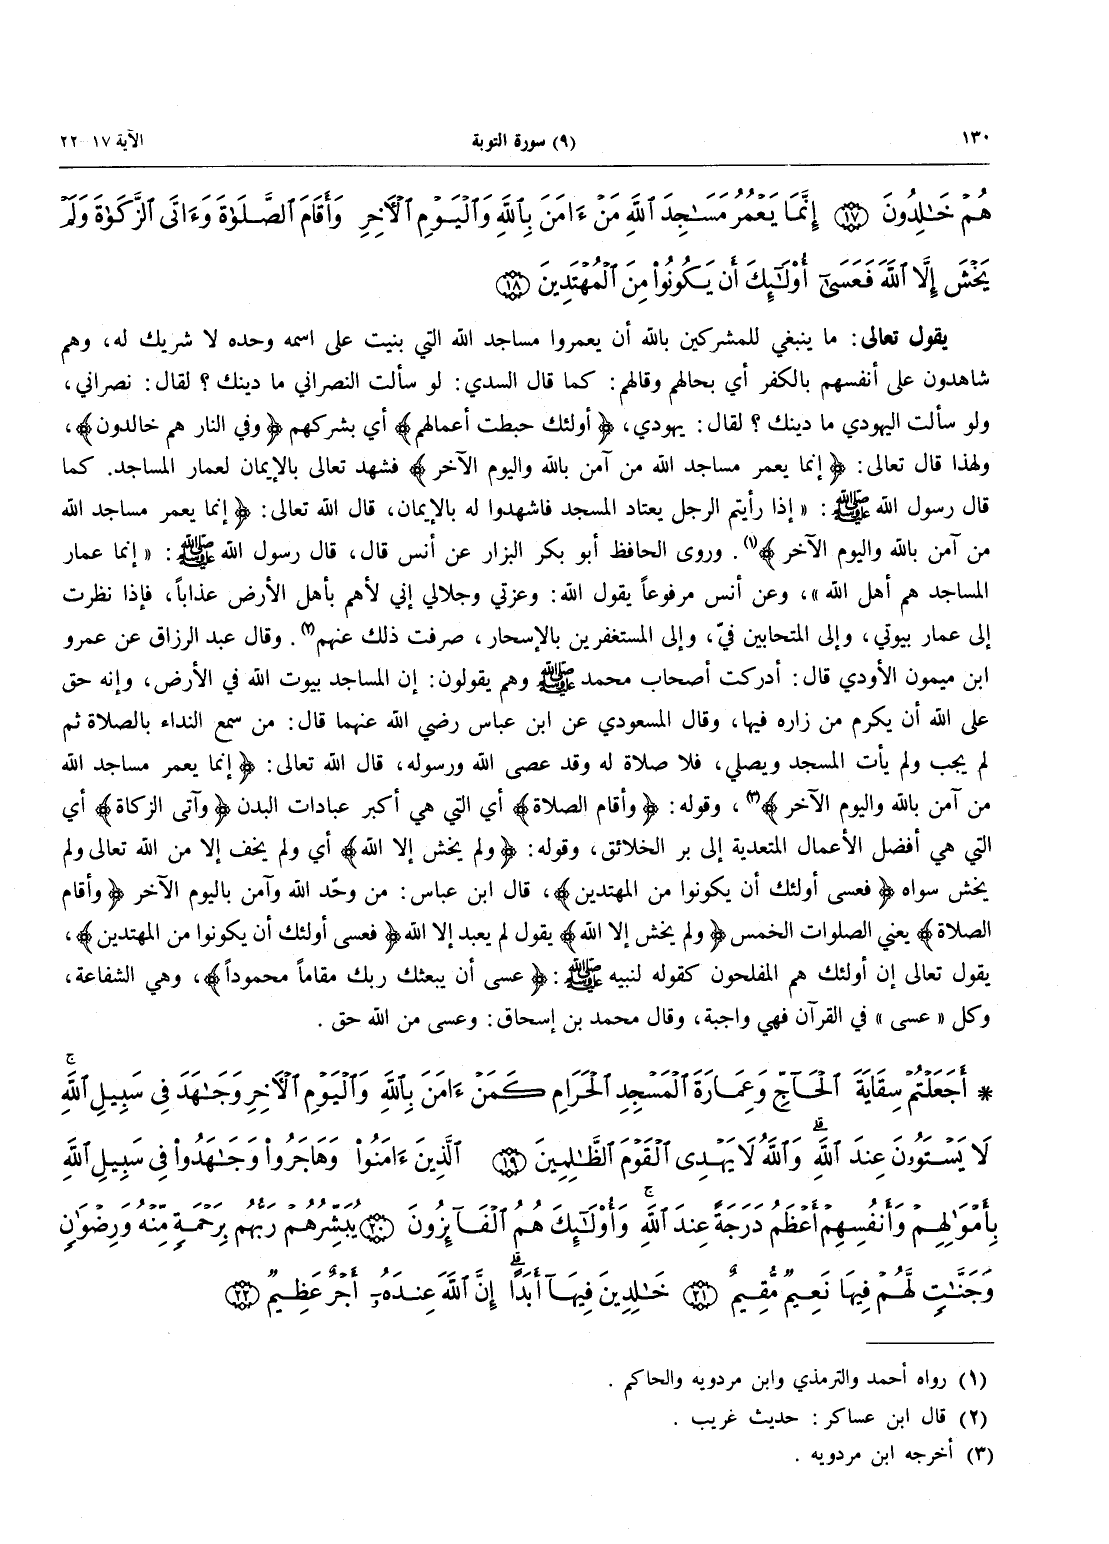 ١٣٠ (٩) سورة التوبة الآية ١٧-٢٢
هُمْ خَٰلِدُونَ ١٧ إِنَّمَا يَعْمُرُ مَسَٰجِدَ ٱللَّهِ مَنْ ءَامَنَ بِٱللَّهِ وَٱلْيَوْمِ ٱلْأَخِرِ وَأَقَامَ ٱلصَّلَوٰةَ وَءَاتَى ٱلزَّكَوٰةَ وَلَمْ
يَخْشَ إِلَّا ٱللَّهَ فَعَسَىٰٓ أُوْلَٰٓئِكَ أَن يَكُونُواْ مِنَ ٱلْمُهْتَدِينَ ١٨
يقول تعالى: ما ينبغي للمشركين بالله أن يعمروا مساجد الله التي بنيت على اسمه وحده لا شريك له، وهم
شاهدون على أنفسهم بالكفر أي بحالهم وقالهم: كما قال السدي: لو سألت النصراني ما دينك؟ لقال: نصراني،
ولو سألت اليهودي ما دينك؟ لقال: يهودي، ﴿أولئك حبطت أعمالهم﴾ أي بشركهم ﴿وفي النار هم خالدون﴾،
ولهذا قال تعالى: ﴿إنما يعمر مساجد الله من آمن بالله واليوم الآخر﴾ فشهد تعالى بالإيمان لعمار المساجد. كما
قال رسول الله ﷺ: «إذا رأيتم الرجل يعتاد المسجد فاشهدوا له بالإيمان، قال الله تعالى: ﴿إنما يعمر مساجد الله
من آمن بالله واليوم الآخر﴾(١). وروى الحافظ أبو بكر البزار عن أنس قال، قال رسول الله ﷺ: «إنما عمار
المساجد هم أهل الله»، وعن أنس مرفوعاً يقول الله: وعزتي وجلالي إني لأهم بأهل الأرض عذاباً، فإذا نظرت
إلى عمار بيوتي، وإلى المتحابين فيّ، وإلى المستغفرين بالإسحار، صرفت ذلك عنهم(٢). وقال عبد الرزاق عن عمرو
ابن ميمون الأودي قال: أدركت أصحاب محمد ﷺ وهم يقولون: إن المساجد بيوت الله في الأرض، وإنه حق
على الله أن يكرم من زاره فيها، وقال المسعودي عن ابن عباس رضي الله عنهما قال: من سمع النداء بالصلاة ثم
لم يجب ولم يأت المسجد ويصلي، فلا صلاة له وقد عصى الله ورسوله، قال الله تعالى: ﴿إنما يعمر مساجد الله
من آمن بالله واليوم الآخر﴾(٣)، وقوله: ﴿وأقام الصلاة﴾ أي التي هي أكبر عبادات البدن ﴿وآتى الزكاة﴾ أي
التي هي أفضل الأعمال المتعدية إلى بر الخلائق، وقوله: ﴿ولم يخش إلا الله﴾ أي ولم يخف إلا من الله تعالى ولم
يخش سواه ﴿فعسى أولئك أن يكونوا من المهتدين﴾، قال ابن عباس: من وحّد الله وآمن باليوم الآخر ﴿وأقام
الصلاة﴾ يعني الصلوات الخمس ﴿ولم يخش إلا الله﴾ يقول لم يعبد إلا الله ﴿فعسى أولئك أن يكونوا من المهتدين﴾،
يقول تعالى إن أولئك هم المفلحون كقوله لنبيه ﷺ: ﴿عسى أن يبعثك ربك مقاماً محموداً﴾، وهي الشفاعة،
وكل «عسى» في القرآن فهي واجبة، وقال محمد بن إسحاق: وعسى من الله حق.
* أَجَعَلْتُمْ سِقَايَةَ ٱلْحَآجِّ وَعِمَارَةَ ٱلْمَسْجِدِ ٱلْحَرَامِ كَمَنْ ءَامَنَ بِٱللَّهِ وَٱلْيَوْمِ ٱلْأَخِرِ وَجَٰهَدَ فِى سَبِيلِ ٱللَّهِۚ
لَا يَسْتَوُۥنَ عِندَ ٱللَّهِۗ وَٱللَّهُ لَا يَهْدِى ٱلْقَوْمَ ٱلظَّٰلِمِينَ ١٩ ٱلَّذِينَ ءَامَنُواْ وَهَاجَرُواْ وَجَٰهَدُواْ فِى سَبِيلِ ٱللَّهِ
بِأَمْوَٰلِهِمْ وَأَنفُسِهِمْ أَعْظَمُ دَرَجَةً عِندَ ٱللَّهِۚ وَأُوْلَٰٓئِكَ هُمُ ٱلْفَآئِزُونَ ٢٠ يُبَشِّرُهُمْ رَبُّهُم بِرَحْمَةٍ مِّنْهُ وَرِضْوَٰنٍ
وَجَنَّٰتٍ لَّهُمْ فِيهَا نَعِيمٌ مُّقِيمٌ ٢١ خَٰلِدِينَ فِيهَآ أَبَدًاۗ إِنَّ ٱللَّهَ عِندَهُۥٓ أَجْرٌ عَظِيمٌ ٢٢
(١) رواه أحمد والترمذي وابن مردويه والحاكم.
(٢) قال ابن عساكر: حديث غريب.
(٣) أخرجه ابن مردويه.